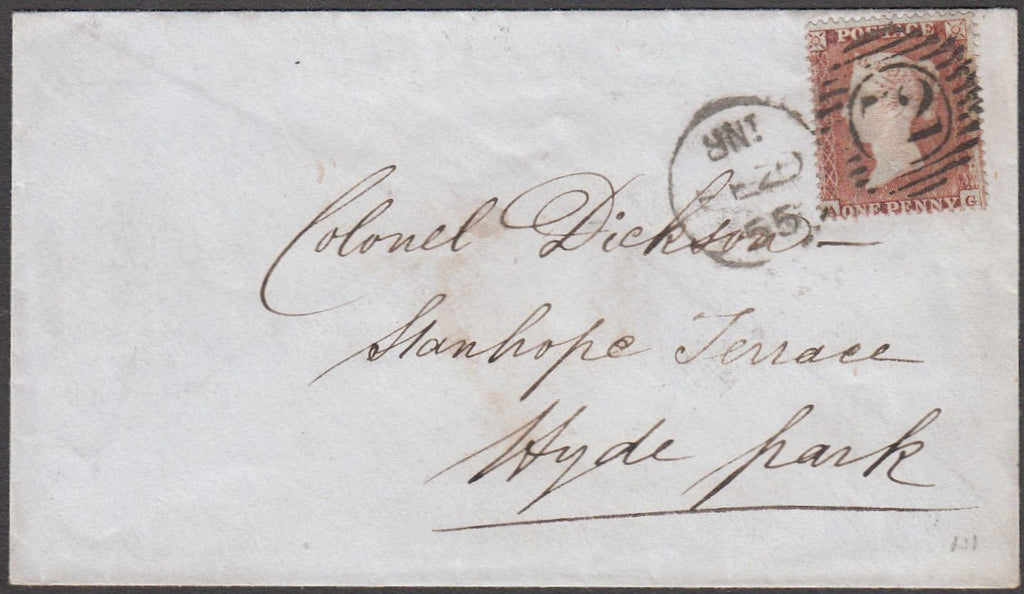 POSTAGE
21
ONE PENNY G
Colonel Dickson.
Stanhope Terrace
Hyde park